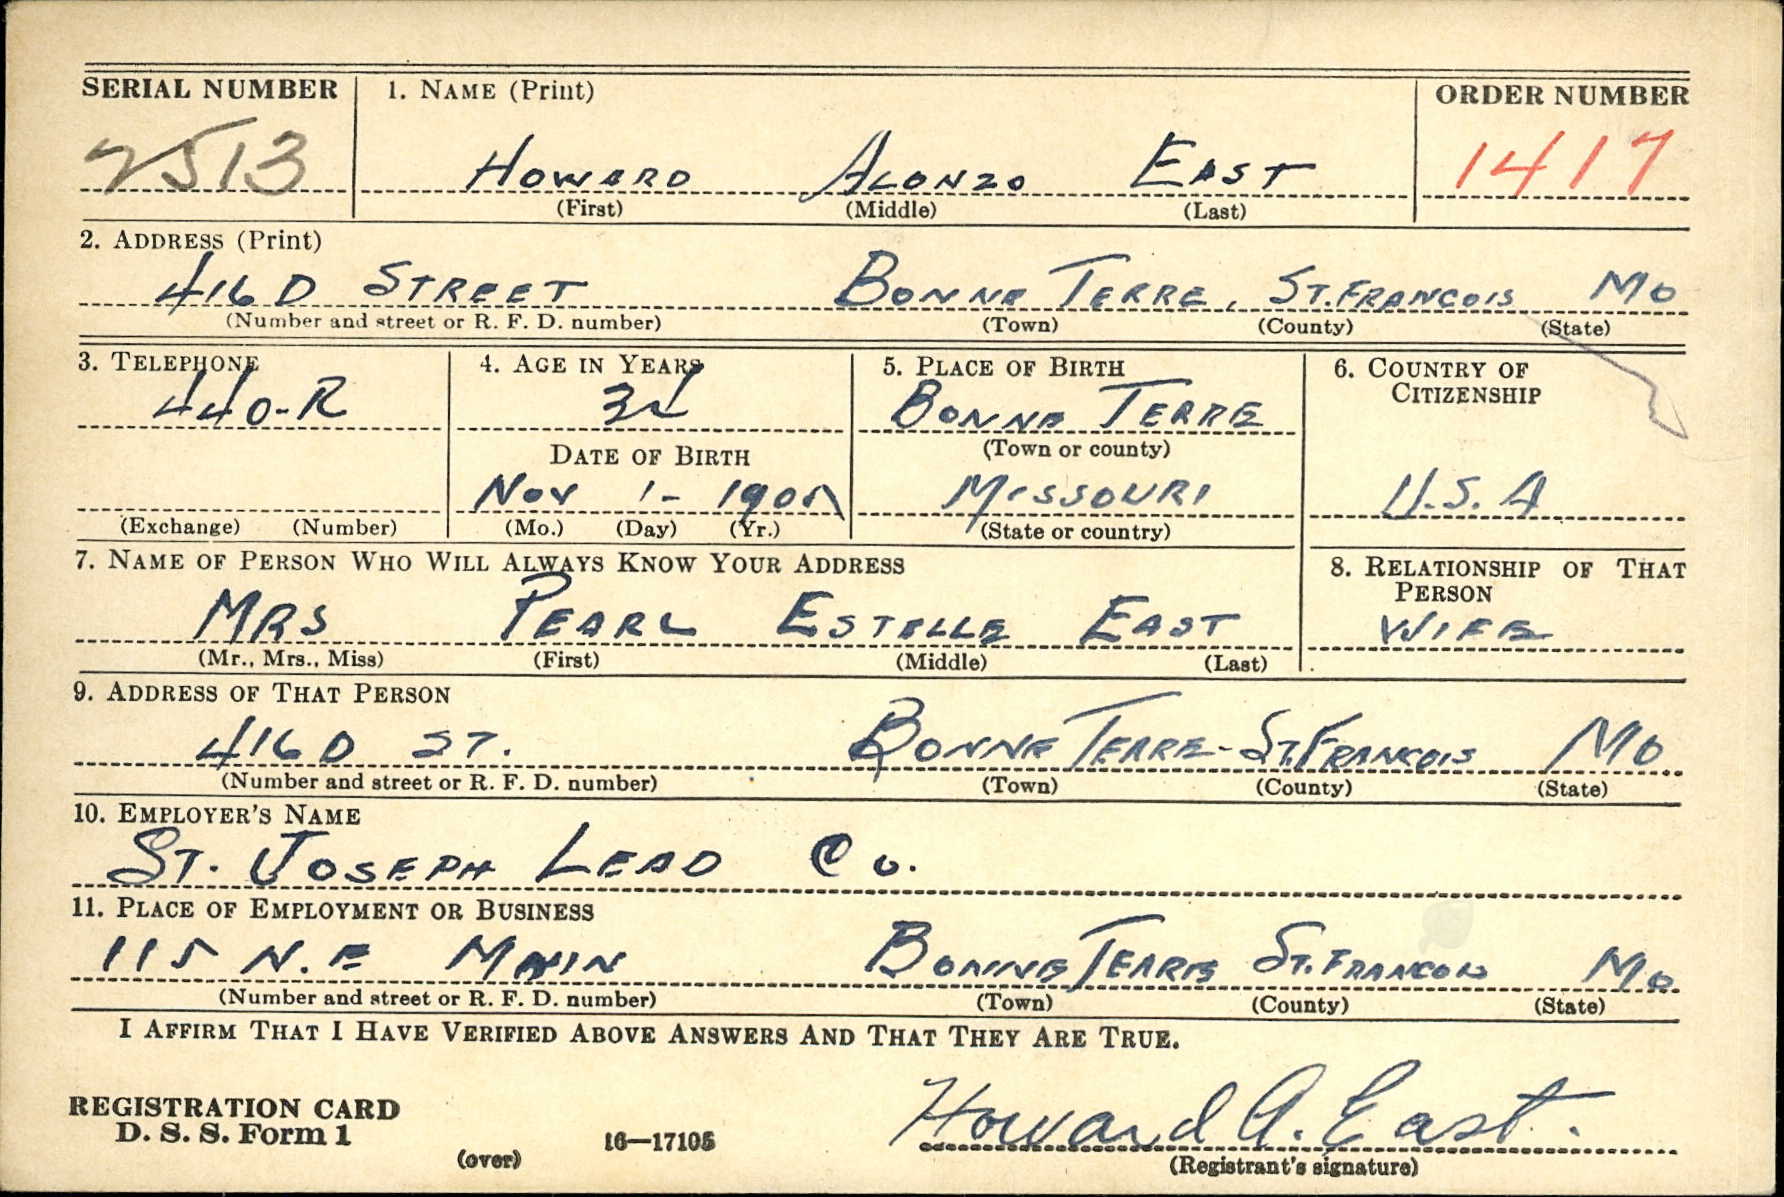 SERIAL NUMBER
2513
1. NAME (Print)
HOWARD ALONZO EAST
(First) (Middle) (Last)
ORDER NUMBER
1417
2. ADDRESS (Print)
416 D STREET BONNE TERRE, ST. FRANCOIS MO
(Number and street or R. F. D. number) (Town) (County) (State)
3. TELEPHONE
440-R
(Exchange) (Number)
4. AGE IN YEARS
34
DATE OF BIRTH
NOV 1- 1905
(Mo.) (Day) (Yr.)
5. PLACE OF BIRTH
BONNE TERRE
(Town or county)
MISSOURI
(State or country)
6. COUNTRY OF
CITIZENSHIP
U.S.A
7. NAME OF PERSON WHO WILL ALWAYS KNOW YOUR ADDRESS
MRS PEARL ESTELLE EAST
(Mr., Mrs., Miss) (First) (Middle) (Last)
8. RELATIONSHIP OF THAT
PERSON
WIFE
9. ADDRESS OF THAT PERSON
416 D ST. BONNE TERRE - ST. FRANCOIS MO
(Number and street or R. F. D. number) (Town) (County) (State)
10. EMPLOYER'S NAME
ST. JOSEPH LEAD Co.
11. PLACE OF EMPLOYMENT OR BUSINESS
115 N.E MAIN BONNE TERRE ST. FRANCOIS MO
(Number and street or R. F. D. number) (Town) (County) (State)
I AFFIRM THAT I HAVE VERIFIED ABOVE ANSWERS AND THAT THEY ARE TRUE.
REGISTRATION CARD
D. S. S. Form 1
(over)
16—17105
Howard A. East.
(Registrant's signature)